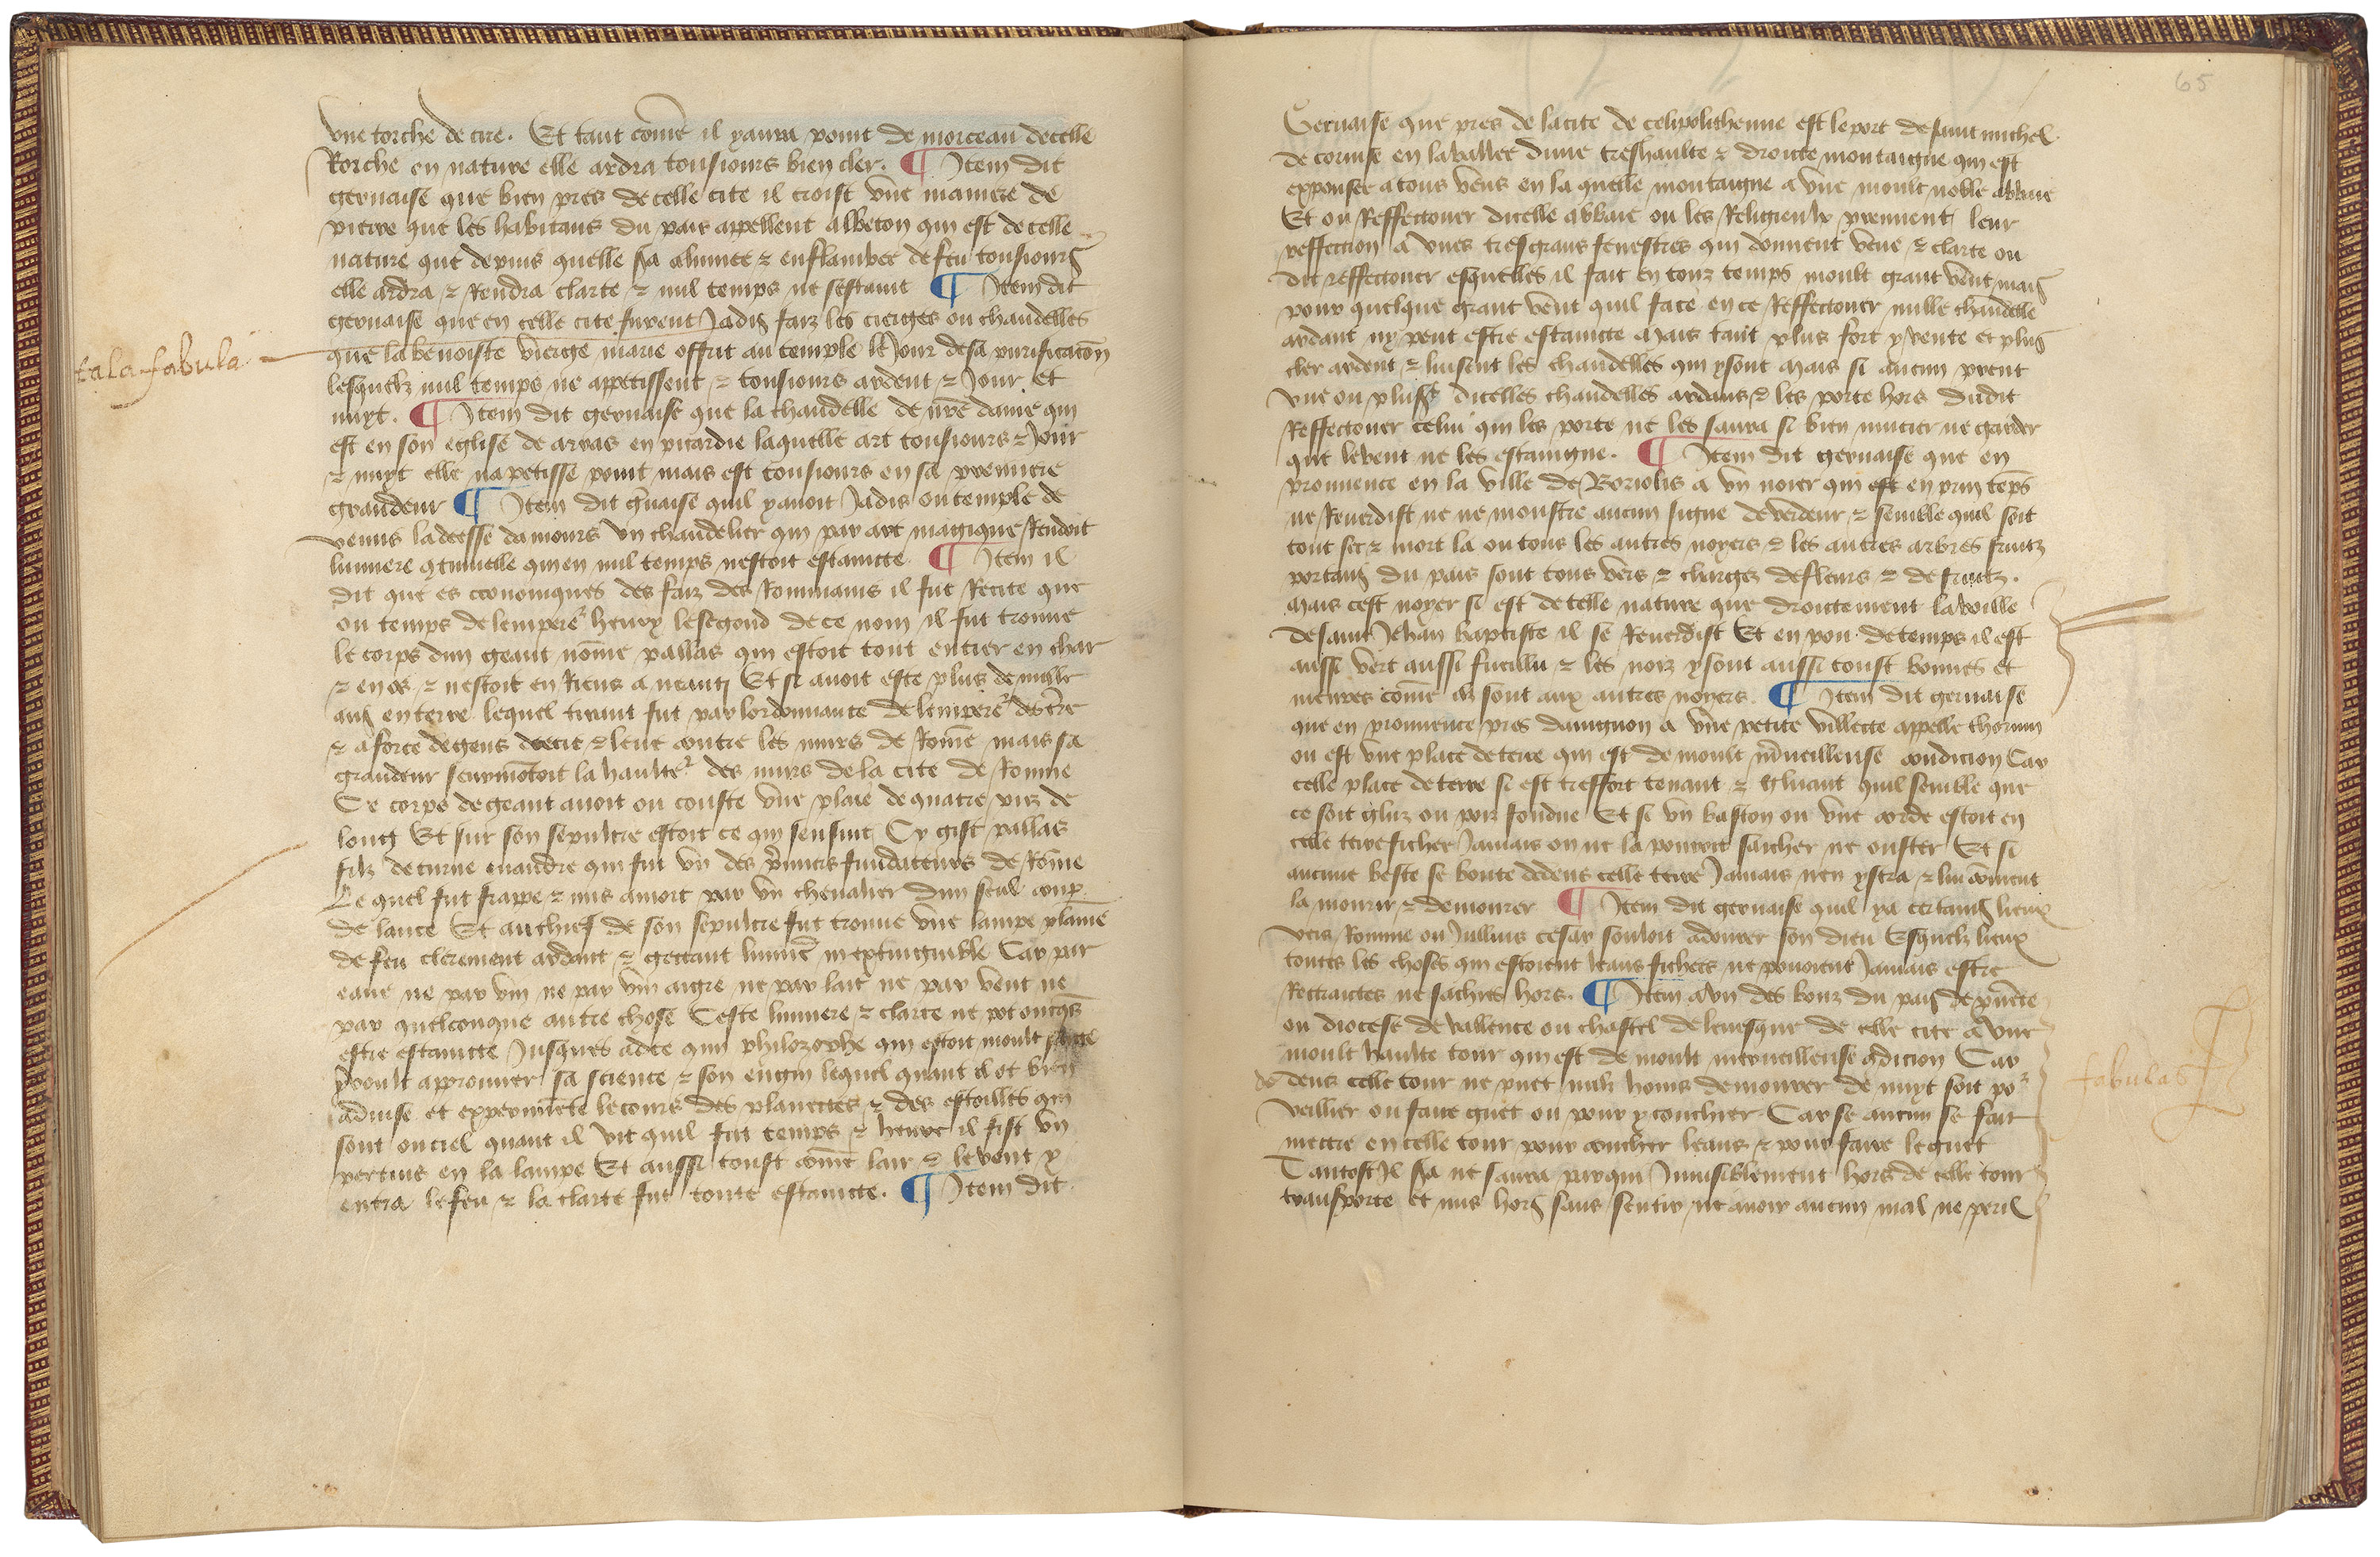 vne torche de cire. Et tant come il yaura point de morceau decelle
Roche en nature elle ardra tousiours bien cler. ¶ Item dit
geruaise que bien pres decelle cite il croist vne maniere de
pierre que les habitans du pais appellent albeton qui est decelle
nature que depuis quelle sa alumee & enflambee de feu tousiours
elle ardra & Rendra clarte & nul temps ne sestaint ¶ Item dit
geruaise que en celle cite furent Jadis faiz les cierges ou chandelles
que la benoiste vierge marie offrit au temple le Jour desa purificacion
lesquelz nul temps ne appetissent & tousiours ardent & Jour et
nuyt. ¶ Item dit geruaise que la chandelle de nre dame qui
est en son eglise de arras en picardie laquelle art tousiours & Jour
& nuyt elle napetisse point mais est tousiours en sa premiere
grandeur ¶ Item dit guaise quil yauoit Jadis ou temple de
venus ladeesse damours vn chandelier qui par art magique Rendoit
lumiere qtinuelle quien nul temps nestoit estaincte ¶ Item il
dit que es croniques des faiz des Rommains il fut Recite que
ou temps de lempere henry lesegond de ce nom il fut trouue
le corps dun geant nomme pallas qui estoit tout entier en char
& en os & nestoit en Riens aneanti Et si auoit este plus de mille
ans en terre lequel tirant fut par lordonnance de lempere
& aforce degens & leue contre les murs de Rome mais sa
grandeur seurmotoit la haulte des murs dela cite de Romme
Ce corps degeant auoit ou couste vne plaie de quatre piez de
long Et sur son sepultre estoit ce qui sensuit Cy gist pallas
filz deturne euandre qui fut vn des pmiers fundateurs de Rome
Le quel fut frappe & mis amort par vn cheualier dun seul coup
de lance Et au chief de son sepultre fut trouue vne lampe plaine
de feu clerement ardant & gectant lumie inextinguible Car par
eaue ne par vin ne par vin aigre ne par lait ne par vent ne
par quelconque autre chose Ceste lumiere & clarte ne pot oncqs
estre estaincte Jusques adce que philozophe qui estoit moult
voult approuuer sa science & son engin lequel quant il ot bien
aduise et experimete lecours des planectes & des estoilles qui
sont ou ciel quant il vit quil fut temps & heure il fist vn
pertuis en la lampe Et aussi toust come lair & le vent y
entra lefeu & la clarte fut toute estaincte. ¶ Item dit
fabula
65
Geruaise que pres de lacite de celipolithenne est le port de saint michel
de cornise en lavallee dune treshaulte & droicte montaigne qui est
exposee atous vens en la quelle montaigne a vne moult noble abbaie
Et ou Reffectouer dicelle abbaie ou les Religieulx prennent leur
reffection a vnes tresgrans fenestres qui donnent veue & clarte ou
dit reffectouer esquelles il fait en touz temps moult grant vent mais
pour quelque grant vent quil face en ce Reffectouer nulle chandelle
ardant ny peut estre estaincte Mais tant plus fort y vente et plus
cler ardent & luisent les chandelles qui ysont Mais si aucun prent
vne ou plus dicelles chandelles ardans & les porte hors dudit
Reffectouer celui qui les porte ne les saura si bien mucier ne garder
que levent ne les estaingne. ¶ Item dit geruaise que en
prouuence en la ville de Boriolis a vn noier qui est en prin teps
ne Reuerdist ne ne monstre aucun signe de verdeur & semble quil soit
tout sec & mort la ou tous les autres noyers & les autres arbres fruitz
portans du pais sont tous vers & chargez defleurs & de fruitz.
Mais cest noyer si est de telle nature que droictement laveille
de saint Jehan baptiste il se Reuerdist Et en pou detemps il est
aussi vert aussi fueillu & les noiz ysont aussi toust bonnes et
meures come ilz sont aux autres noyers ¶ Item dit geruaise
que en prouuence pres dauignon a vne petite villecte appelle thorinn
ou est vne place deterre qui est de moult mueilleuse condicion Car
celle place de terre si est tresfort tenant & gluant quil semble que
ce soit gluz ou poix fondue Et si vn baston ou vne corde estoit en
celle terre fichee Jamais on ne la pourroit saicher ne ouster Et si
aucune beste se boute dedens celle terre Jamais nen ystra & lui conuient
la mourir & demourer ¶ Item dit geruaise quil ya certains lieux
vers Romme ou Jullius cesar souloit adourer son dieu Esquelz lieux
toutes les choses qui estoient leans fichees ne pouoient Jamais estre
Retraictes ne sachees hors. ¶ Item a vn des bouz du pais de puece
ou diocese de vallence ou chastel de leuesque de celle cite a vne
moult haulte tour qui est de moult merueilleuse qdicion Car
de dens celle tour ne puet nulz homs demourer de nuyt soit po
veillier ou faire guet ou pour y couchier. Car se aucun se fait
mectre en celle tour pour coucher leans & pour faire le guet
Tantost il sa ne saura par qui Inuisiblement hors de celle tour
transporte et mis hors sans sentir ne auoir aucun mal ne peril
fabulas